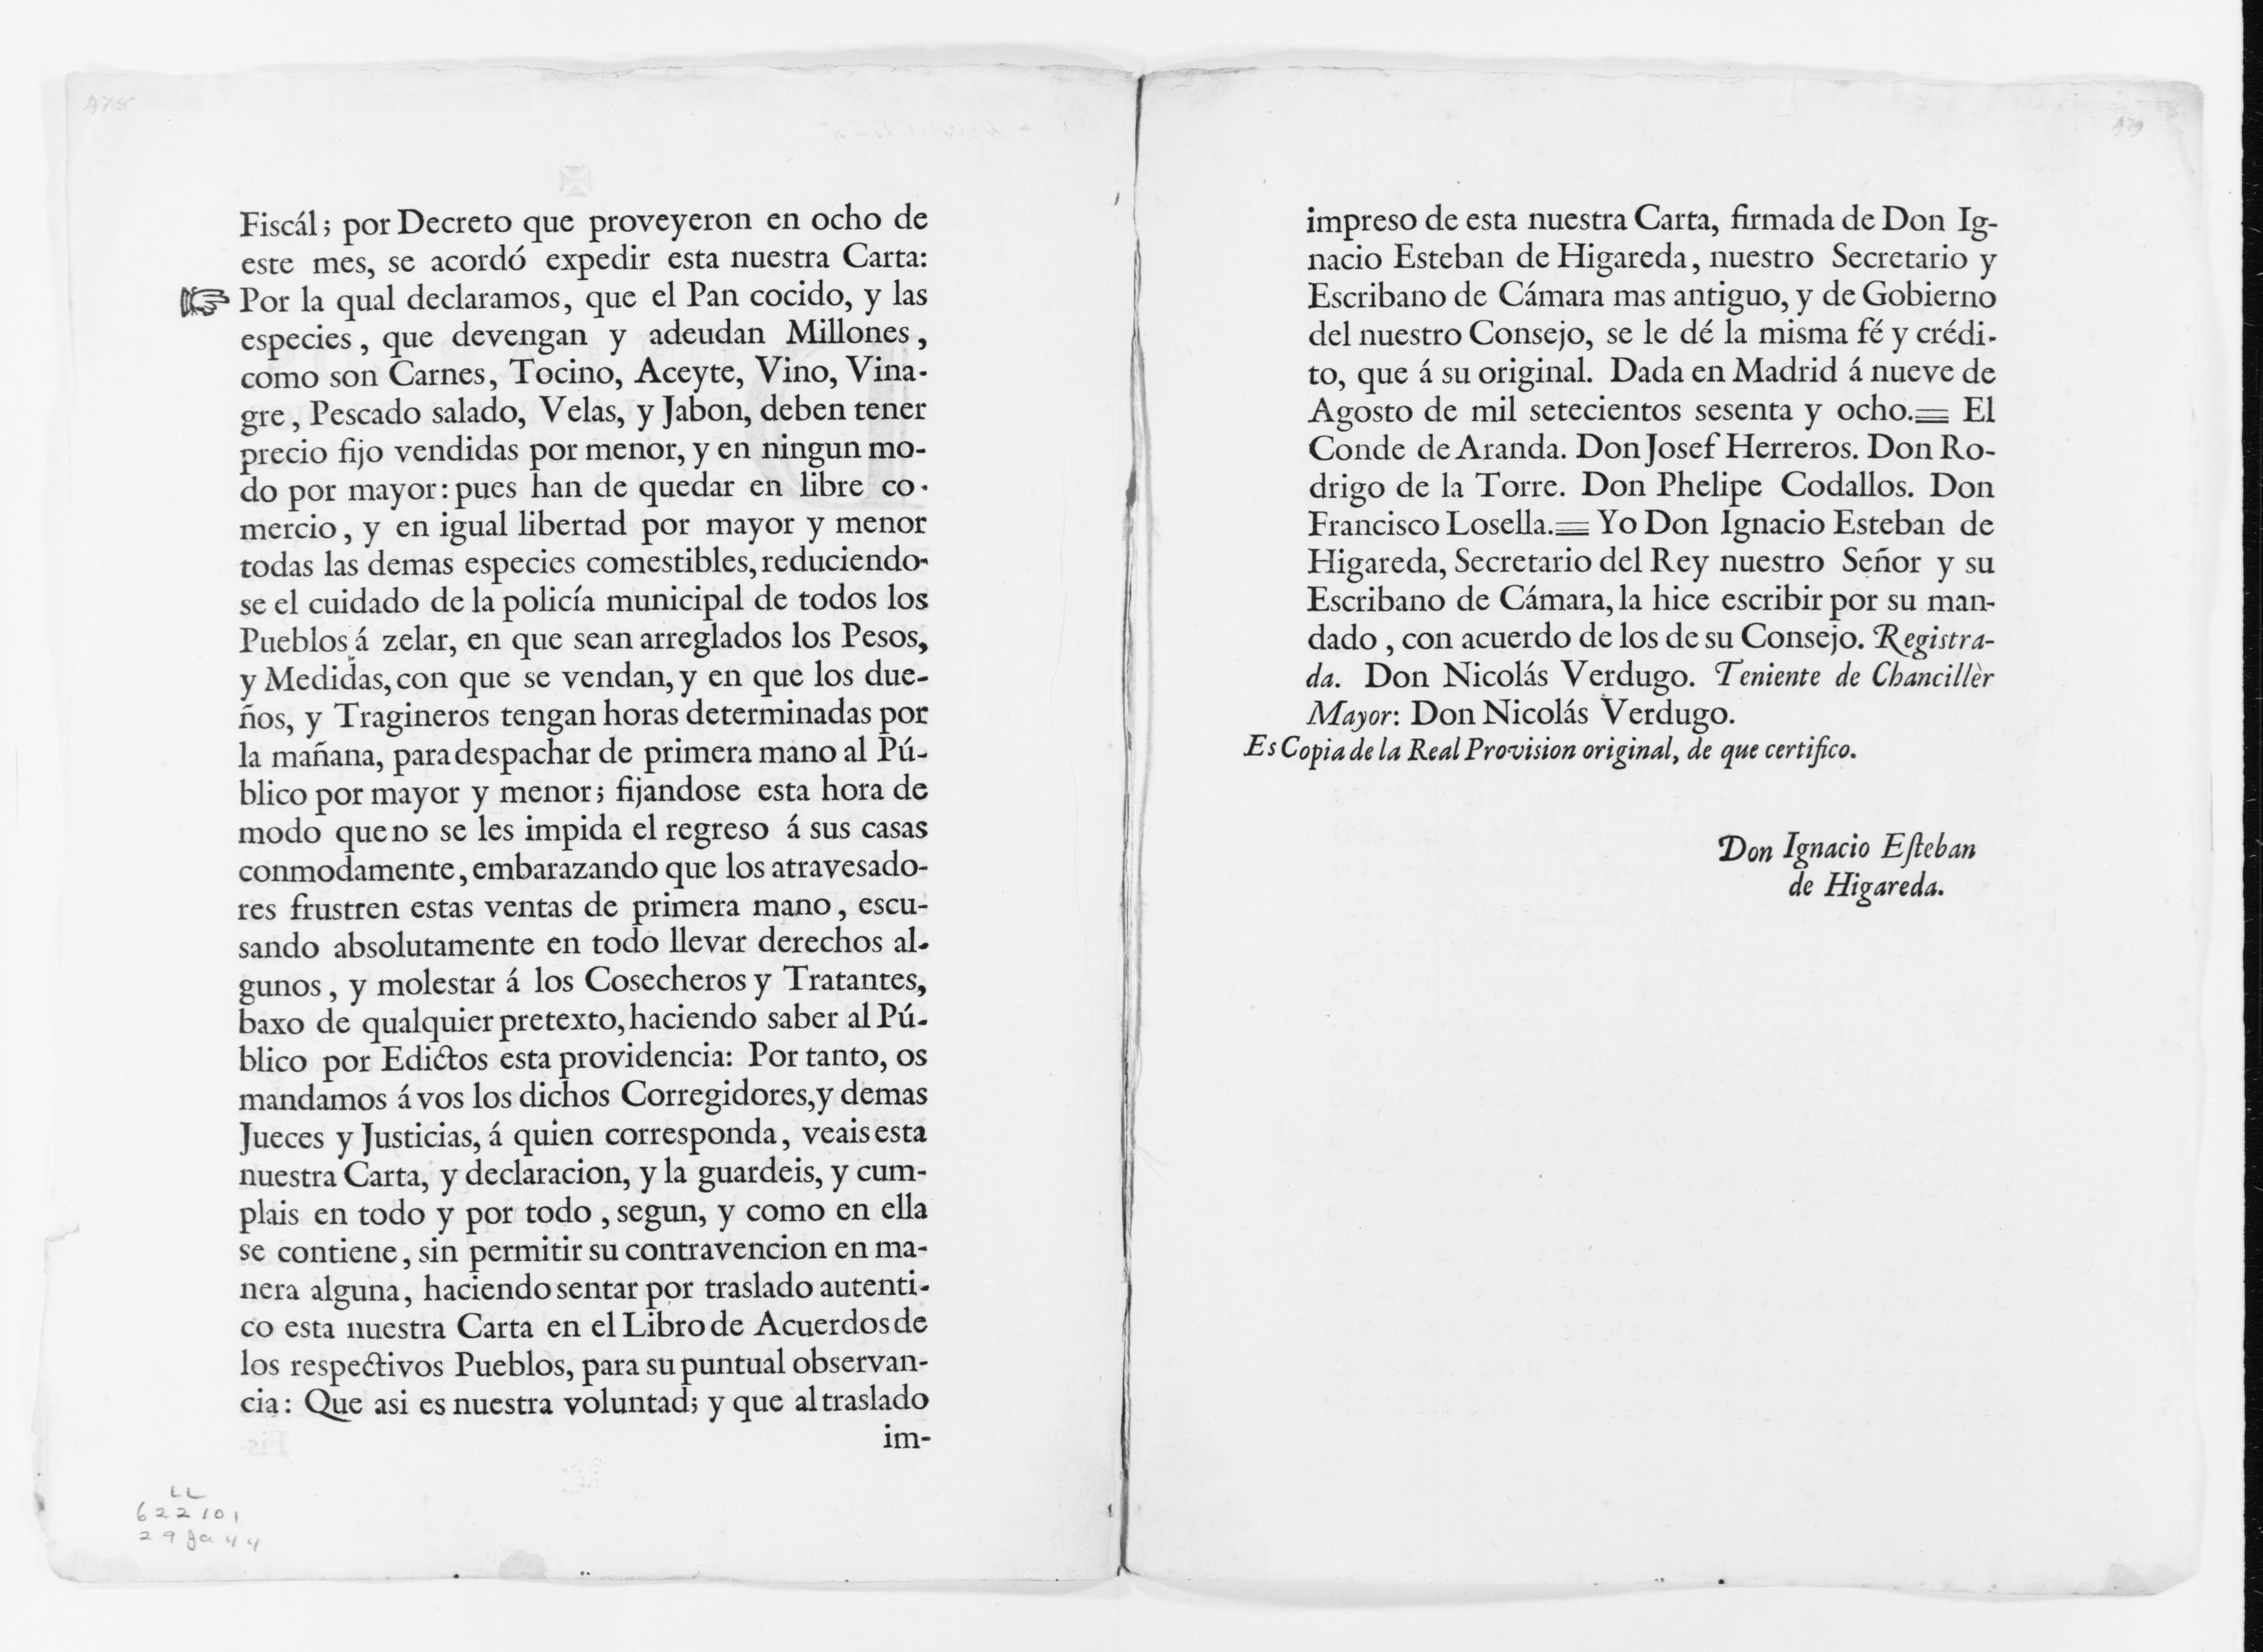 478
Fiscál; por Decreto que proveyeron en ocho de
este mes, se acordó expedir esta nuestra Carta:
☞ Por la qual declaramos, que el Pan cocido, y las
especies, que devengan y adeudan Millones,
como son Carnes, Tocino, Aceyte, Vino, Vina-
gre, Pescado salado, Velas, y Jabon, deben tener
precio fijo vendidas por menor, y en ningun mo-
do por mayor: pues han de quedar en libre co-
mercio, y en igual libertad por mayor y menor
todas las demas especies comestibles, reduciendo-
se el cuidado de la policía municipal de todos los
Pueblos á zelar, en que sean arreglados los Pesos,
y Medidas, con que se vendan, y en que los due-
ños, y Tragineros tengan horas determinadas por
la mañana, para despachar de primera mano al Pú-
blico por mayor y menor; fijandose esta hora de
modo que no se les impida el regreso á sus casas
conmodamente, embarazando que los atravesado-
res frustren estas ventas de primera mano, escu-
sando absolutamente en todo llevar derechos al-
gunos, y molestar á los Cosecheros y Tratantes,
baxo de qualquier pretexto, haciendo saber al Pú-
blico por Edictos esta providencia: Por tanto, os
mandamos á vos los dichos Corregidores, y demas
Jueces y Justicias, á quien corresponda, veais esta
nuestra Carta, y declaracion, y la guardeis, y cum-
plais en todo y por todo, segun, y como en ella
se contiene, sin permitir su contravencion en ma-
nera alguna, haciendo sentar por traslado autenti-
co esta nuestra Carta en el Libro de Acuerdos de
los respectivos Pueblos, para su puntual observan-
cia: Que asi es nuestra voluntad; y que al traslado
im-
LL
622101
29 Ja 44
479
impreso de esta nuestra Carta, firmada de Don Ig-
nacio Esteban de Higareda, nuestro Secretario y
Escribano de Cámara mas antiguo, y de Gobierno
del nuestro Consejo, se le dé la misma fé y crédi-
to, que á su original. Dada en Madrid á nueve de
Agosto de mil setecientos sesenta y ocho.= El
Conde de Aranda. Don Josef Herreros. Don Ro-
drigo de la Torre. Don Phelipe Codallos. Don
Francisco Losella.= Yo Don Ignacio Esteban de
Higareda, Secretario del Rey nuestro Señor y su
Escribano de Cámara, la hice escribir por su man-
dado, con acuerdo de los de su Consejo. Registra-
da. Don Nicolás Verdugo. Teniente de Chancillèr
Mayor: Don Nicolás Verdugo.
Es Copia de la Real Provision original, de que certifico.
Don Ignacio Eſteban
de Higareda.